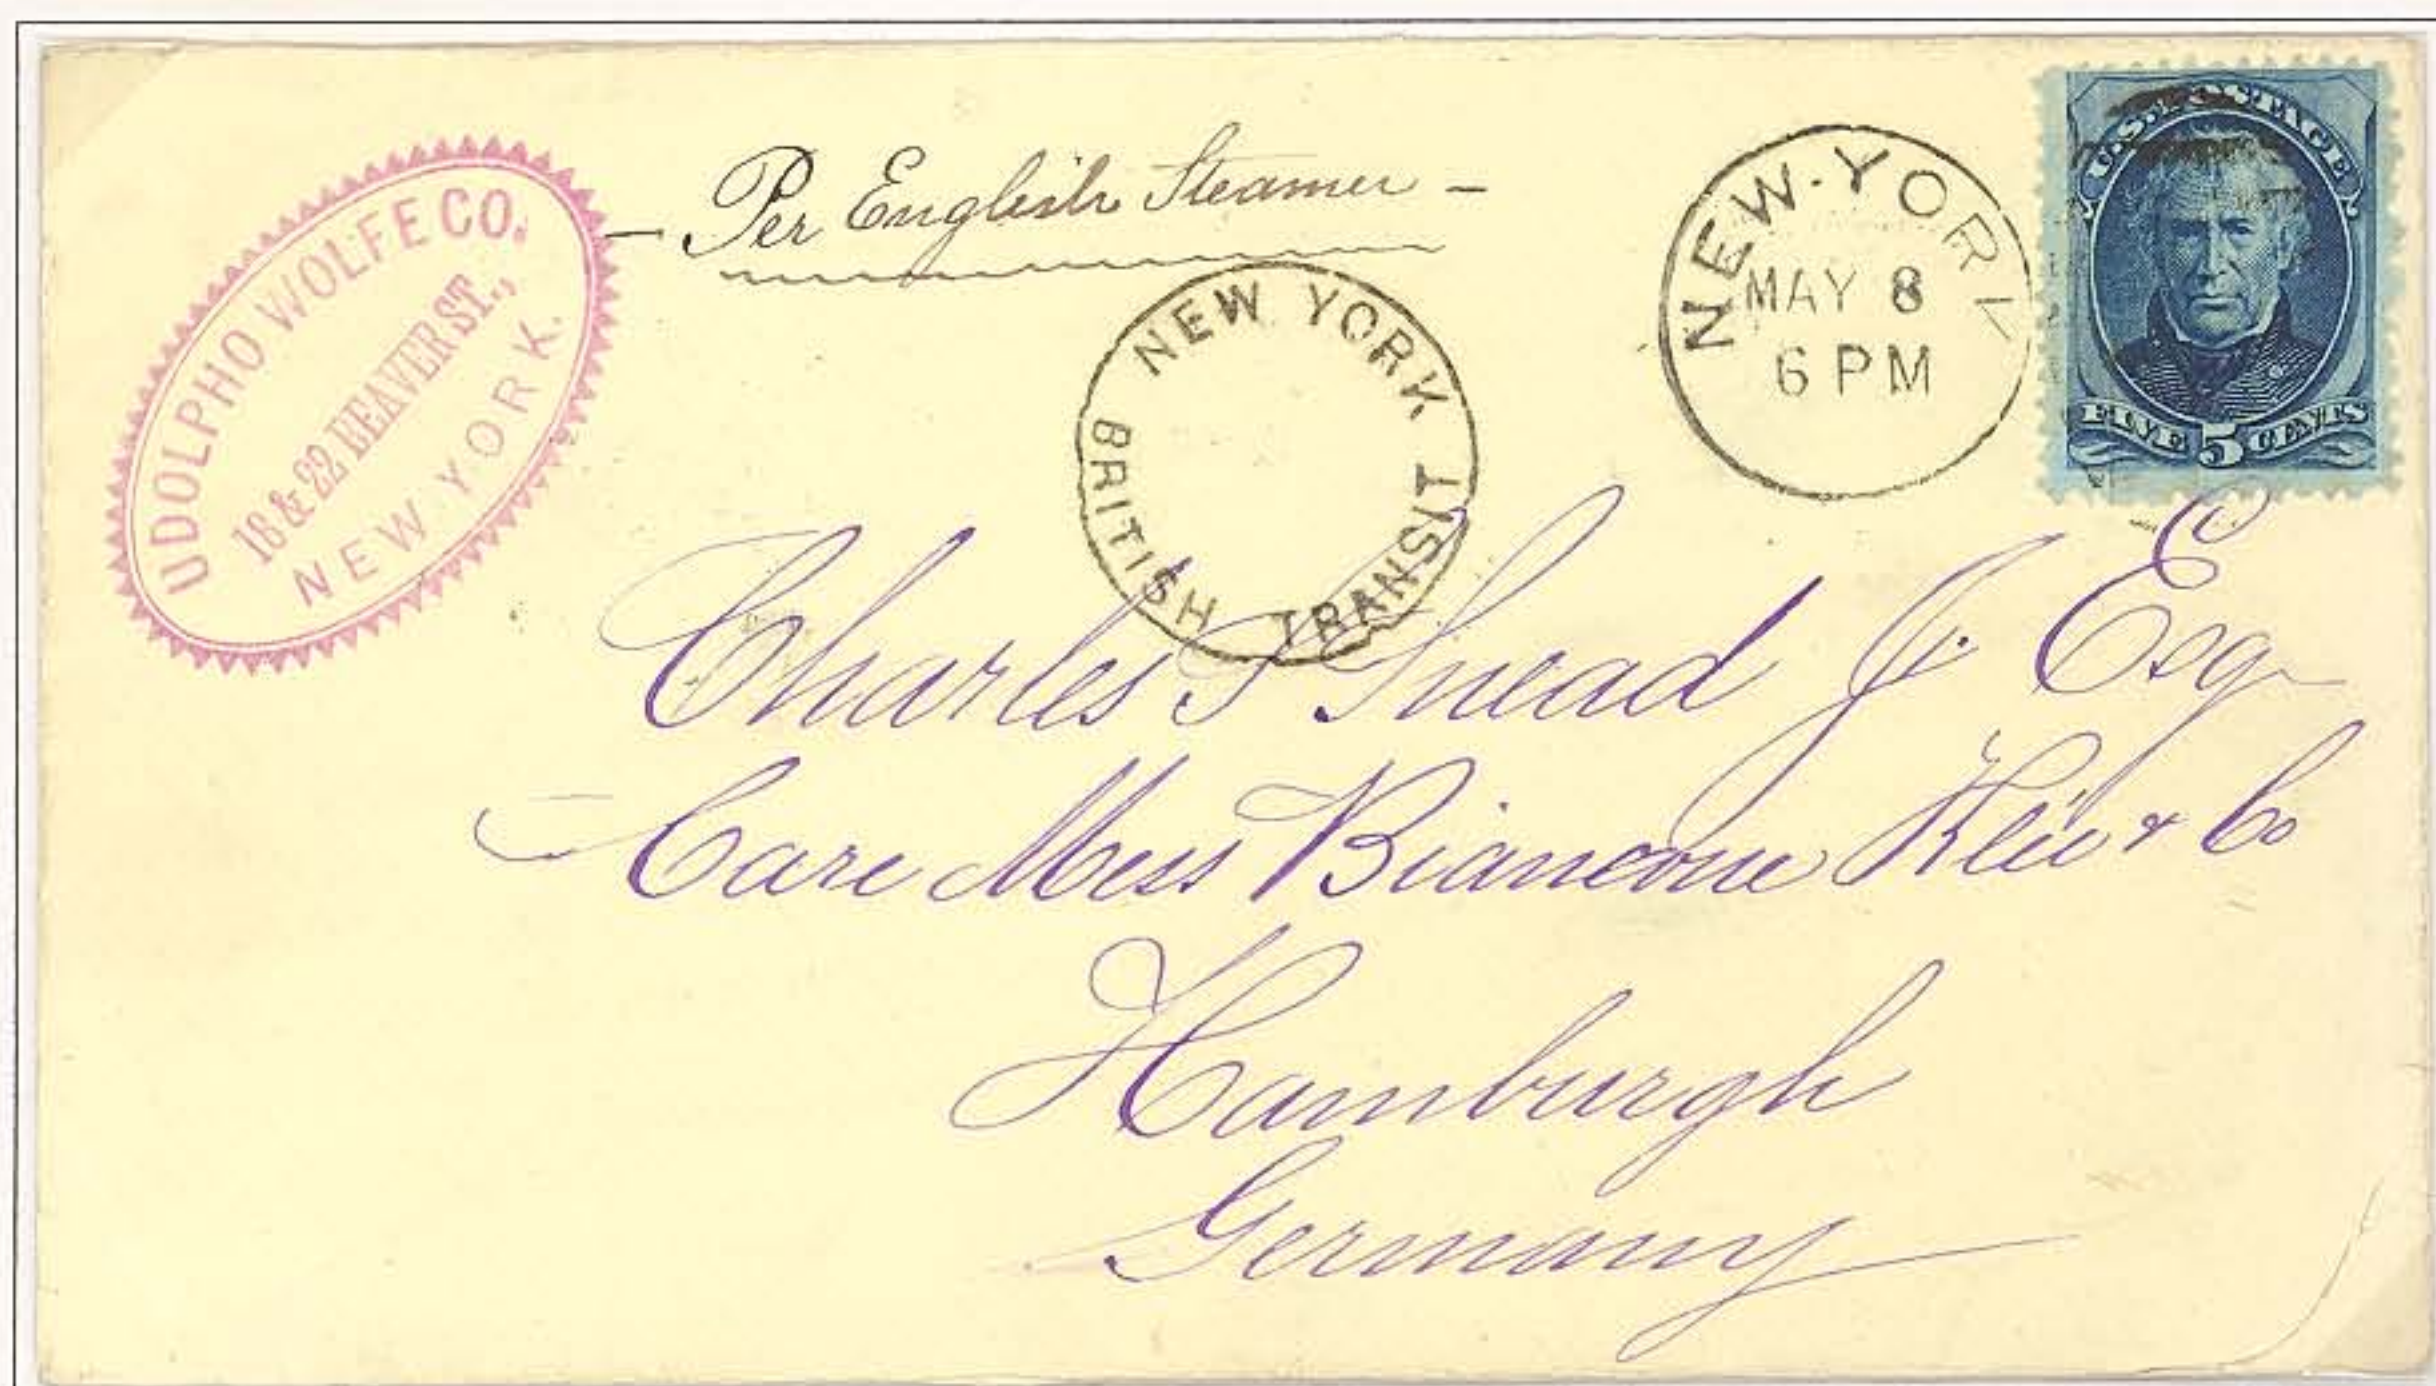 UDOLPHO WOLFE CO.
18 & 22 BEAVER ST.,
NEW YORK.
— Per English Steamer —
NEW YORK
BRITISH TRANSIT
NEW YORK
MAY 8
6 PM
U.S. POSTAGE
FIVE 5 CENTS
Charles S Snead Jr. Esq
Care Mess Biancone & Co
Hamburgh
Germany